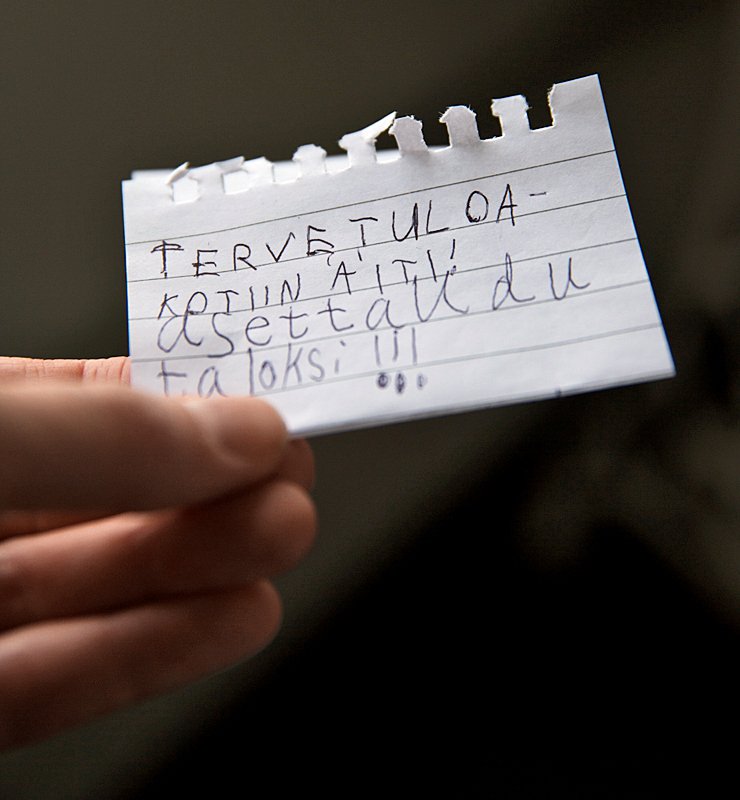 TERVETULOA-
KOTIIN ÄITI!
asettaUdu
taloksi !!!